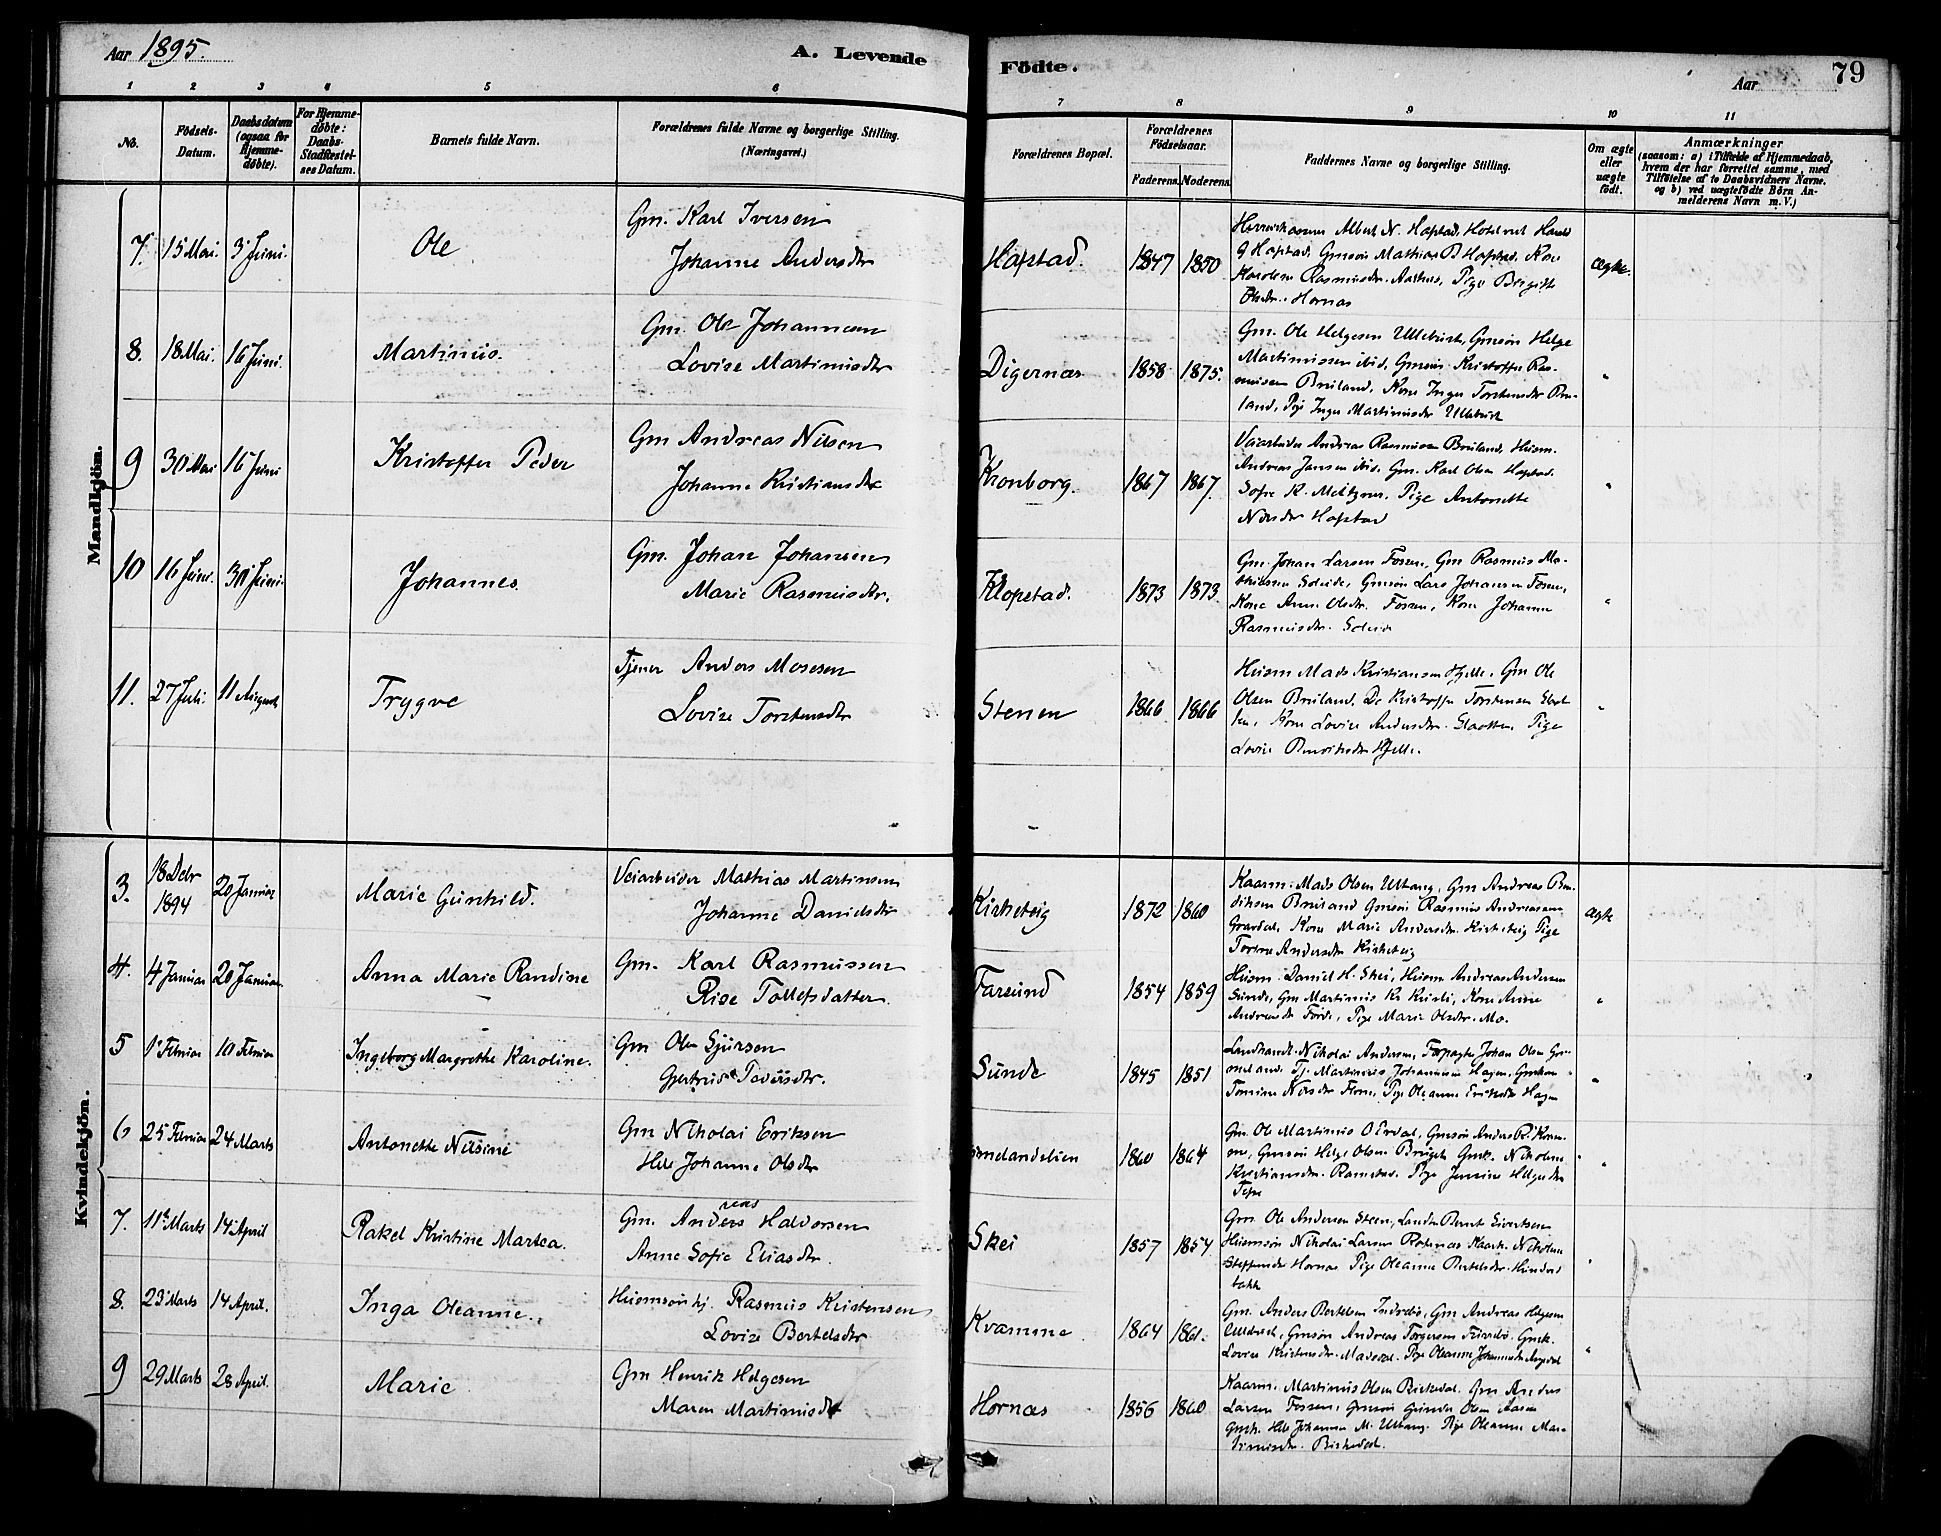 Aar 1895.
A. Levende
Födte.
Aar
79
1 2 3 4 5 6 7 8 9 10 11
No.
Födsels-Datum.
Daabsdatum (ogsaa for Hjemmedöbte).
For Hjemmedöbte: Daabs-Stadfæstelses Datum.
Barnets fulde Navn.
Forældrenes fulde Navne og borgerlige Stilling.
(Næringsvei.)
Forældrenes Bopæl.
Forældrenes Födselsaar.
Faderens. Moderens.
Faddernes Navne og borgerlige Stilling.
Om ægte eller uægte födt.
Anmærkninger
(saasom: a) i Tilfælde af Hjemmedaab, hvem der har forrettet samme, med Tilföielse af to Daabsvidners Navne. og b) ved uægtefödte Börn Anmelderens Navn m. V.)
Mandkjön.
7. 15 Mai. 3 Juni. Ole
Gm. Karl Iversen
Johanne Andersdtr
Hafstad. 1847 1850
Albert N. Hafstad,
Hafstad, Gmsön Mathias B Hafstad, Kone
Rasmusdtr. Pige Birgitte
Olsdtr. Hornæs
ægte.
8. 18 Mai. 16 Juni. Martinus.
Gm. Ole Johannesen
Lovise Martinusdtr
Digernæs 1858 1875.
Gm. Ole Helgesen Gmsön Helge
Martinussen ibid, Gmsön Kristoffer Ras-
mussen Bruland, Kone Inger Torstensdtr Bru-
land, Pige Inger Martinusdtr
"
9 30 Mai 16 Juni Kristoffer Peder
Gm Andreas Nilsen
Johanne Kristiansdtr
Kronborg. 1867 1867.
Veiarbeider Andreas Rasmussen Bruland, Husm.
Andreas Jansen ibid. Gm. Karl Olsen Hafstad.
Sofie K. Pige Antonette
Nilsdtr Hafstad
"
10 16 Juni. 30 Juni. Johannes.
Gm. Johan Johansen
Marie Rasmusdtr.
Klopstad. 1873 1873.
Gm. Johan Larsen Fossen, Gm Rasmus Ma-
thiassen Soleide, Gmsön Lars Johansen Fossen,
Kone Anne Olsdtr. Fossen, Kone Johanne
Rasmusdtr. Soleide
"
11. 27 Juli. 11 August Trygve
Tjener Anders Mosesen
Lovise Torstensdtr
Stenen 1866 1866
Husm Mads Kristiansen Hjelle, Gm Ole
Olsen Bruland, Do Kristoffer Torstensen
Kone Lovise Andersdtr. Slaatten, Pige
Lovise Hjelle.
"
Kvindekjön.
3. 18 Decbr 1894 20 Januar Marie Gunhild.
Veiarbeider Mathias Martinsen
Johanne Danielsdtr
Kirketeig 1872 1860
Kaarm. Mads Olsen Uthaug, Gm Andreas Ben-
diksen Bruland Gmsön Rasmus Andreassen
Kone Marie Andersdtr. Kirketeig Pige
Andersdtr Kirketeig
ægte
4. 4 Januar 20 Januar. Anna Marie Randine
Gm. Karl Rasmussen
Rise Tollefsdatter.
Farsund 1854 1859
Husm. Daniel H. Skei, Husm Andreas Andersen
Sunde, Gm Martinus Kr. Kone Anne
Andreasdtr Förde, Pige Marie Olsdtr. Mo.
"
5 1ste Februar 10 Februar Ingeborg Margrethe Karoline.
Gm Ole Sjursen
Gjertrud Pedersdtr.
Sunde 1845 1851
Landhandl. Nikolai Andersen, Forpagter Johan Olsen
Tj. Martinus Johannesen Hagen, Gmkone
Nilsdtr Pige Oleanne Eriksdtr Hagen
"
6 25 Februar 24 Marts Antonette Nilsine
Gm Nikolai Eriksen
Hele Johanne Olsdtr
1860 1864
Gm. Ole Martinus O Erdal, Gmsön Anders R.
Gmsön Helge Olsen Gmk. Nikoline
Kristiansdtr. Ramstad. Pige Jensine Helgesdtr
"
7. 11te Marts 14de April Rakel Kristine Martea.
Gm. Andreas Haldorsen
Anne Sofie Eliasdtr.
Skei 1857 1854
Gm. Ole Andersen Steen, Bernt Sivertsen
Husmsön Nikolai Larsen Kaark. Nikoline
Steffensdtr Hornæs Pige Oleanne Bertelsdtr.
"
8. 23 Marts 14 April. Inga Oleanne.
Husmsön hj. Rasmus Kristensen
Lovise Bertelsdtr
Kvamme. 1864 1861.
Gm. Anders Bertelsen Indrebö, Gm Andreas Helgesen
Gmsön Andreas Torgersen Gmk.
Lovise Kristensdtr. Pige Oleanne Johannesdtr
"
9 29 Marts 28 April. Marie
Gm Henrik Helgesen
Maren Martinusdtr
Hornæs 1856 1860
Kaarm. Martinus Olsen Birkedal. Gm Anders
Larsen Fossen, Gmsön Gunder Olsen
Gmk. Hele Johanna M. Uthaug. Pige Oleanne Mar-
tinusdtr. Birkedal.